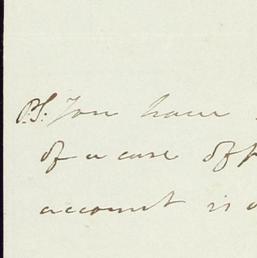 P.S. You have
of a case off
account is